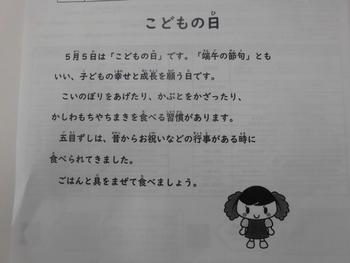 こどもの日
５月５日は「こどもの日」です。「端午の節句」とも
いい、子どもの幸せと成長を願う日です。
こいのぼりをあげたり、かぶとをかざったり、
かしわもちやちまきを食べる習慣があります。
五目ずしは、昔からお祝いなどの行事がある時に
食べられてきました。
ごはんと具をまぜて食べましょう。